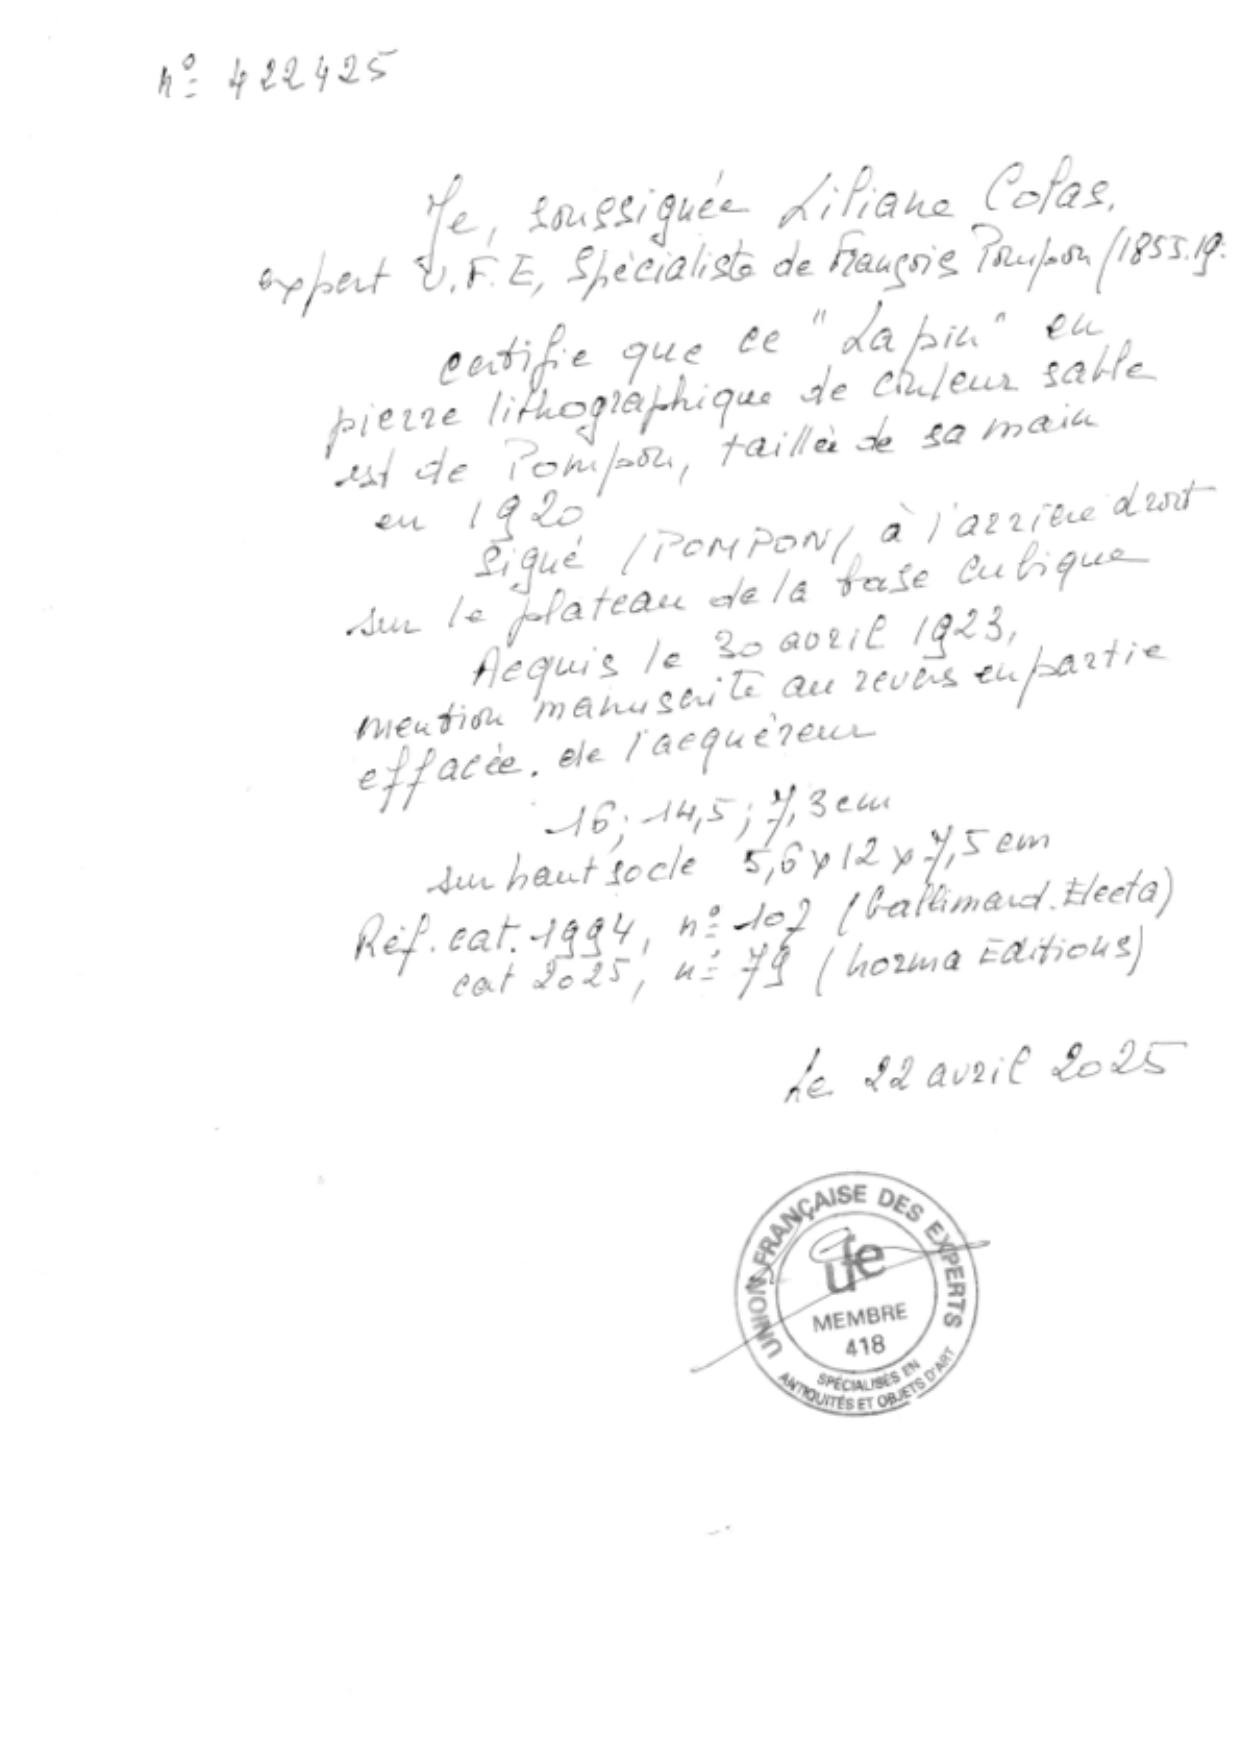 n° 422425
Je, soussignée Liliane Colas,
expert U.F.E, Spécialiste de François Pompon (1855.19
certifie que ce "Lapin" en
pierre lithographique de couleur sable
est de Pompon, taillée de sa main
en 1920
Signé (POMPON) à l'arrière droit
sur le plateau de la base cubique
Acquis le 30 avril 1923,
mention manuscrite au revers en partie
effacée. de l'acquéreur
16; 14,5; 7,3 cm
sur haut socle 5,6 x 12 x 7,5 cm
Réf. cat. 1994, n° 107 (Gallimard. Electa)
cat 2025, n° 79 (Norma Editions)
Le 22 avril 2025
UNION FRANÇAISE DES EXPERTS
ufe
MEMBRE
418
SPÉCIALISÉS EN
ANTIQUITÉS ET OBJETS D'ART